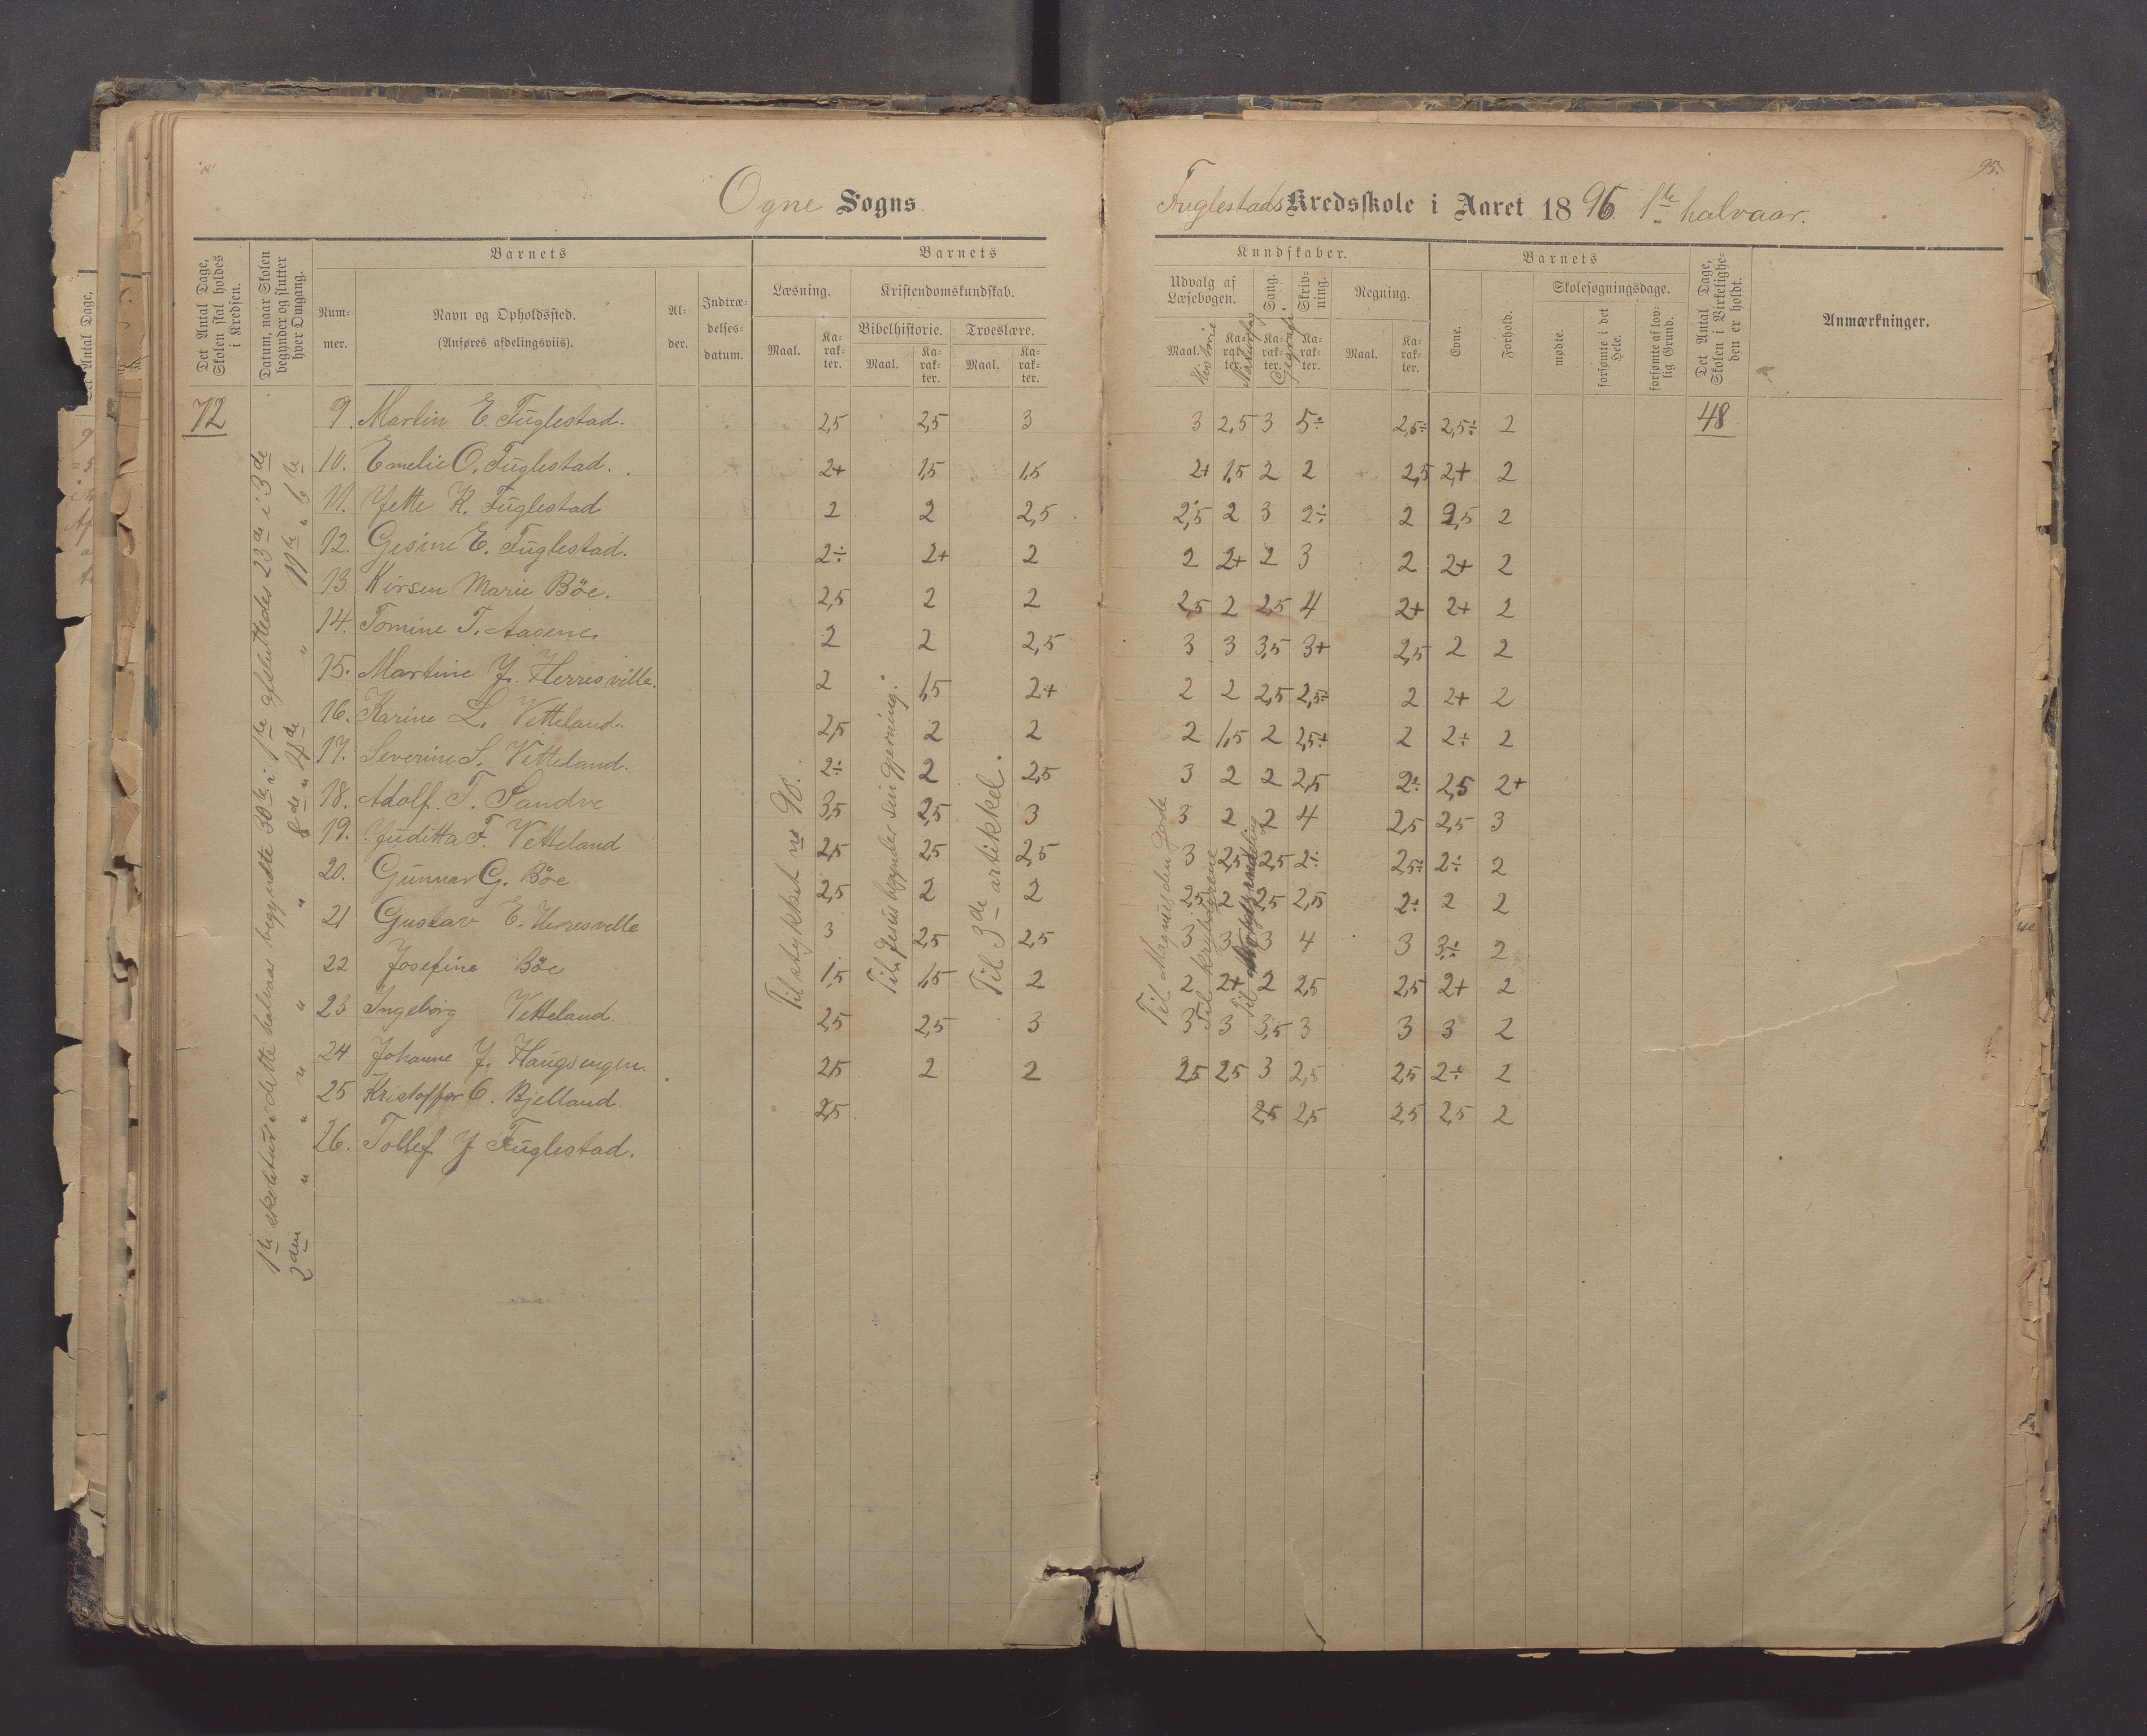 Ogne Sogns
Fuglestads Kredsskole i Aaret 1896 1ste halvaar.
95.
Det Antal Dage, Skolen skal holdes i Kredsen.
Datum, naar Skolen begynder og slutter hver Omgang.
Barnets
Num-mer.
Navn og Opholdssted.
(Anføres afdelingsviis).
Al-der.
Indtræ-delses-datum.
Barnets
Læsning.
Maal.
Ka-rak-ter.
Kristendomskundskab.
Bibelhistorie.
Maal.
Ka-rak-ter.
Troeslære.
Maal.
Ka-rak-ter.
Kundskaber.
Udvalg af Læsebogen.
Maal.
Historie
Ka-rak-ter.
Naturfag
Sang.
Ka-rak-ter.
Gegrafi
Skriv-ning.
Ka-rak-ter.
Regning.
Maal.
Ka-rak-ter.
Barnets
Evne.
Forhold.
Skolesøgningsdage.
mødte.
forsømte i det Hele.
forsømte af lov-lig Grund.
Det Antal Dage, Skolen i Virkelighe-den er holdt.
Anmærkninger.
72
9. Martin E. Fuglestad. 2,5 2,5 3 3 2,5 3 5÷ 2,5÷ 2,5÷ 2 48
10. Emelie O. Fuglestad. 2+ 1,5 1,5 2+ 1,5 2 2 2,5 2+ 2
11. Jette K. Fuglestad 2 2 2,5 2,5 2 3 2÷ 2 2,5 2
12. Gesine E. Fuglestad. 2÷ 2+ 2 2 2+ 2 3 2 2+ 2
13. Kirsen Marie Böe. 2,5 2 2 2,5 2 2,5 4 2+ 2+ 2
14. Tomine T. Aasene. 2 2 2,5 3 3 3,5 3+ 2,5 2 2
15. Martine J. Herresville. 2 1,5 2+ 2 2 2,5 2,5÷ 2 2+ 2
16. Karine L. Vetteland. 2,5 2 2 2 1,5 2 2,5+ 2 2÷ 2
17. Severine S. Vetteland. 2÷ 2 2,5 3 2 2 2,5 2÷ 2,5 2+
18. Adolf T. Sandve 3,5 2,5 3 3 2 2 4 2,5 2,5 3
19. Juditta F. Vetteland 2,5 2,5 2,5 3 2,5 2,5 2÷ 2,5÷ 2÷ 2
20. Gunnar G. Böe 2,5 2 2 2,5 2 2,5 2,5 2÷ 2 2
21 Gustav E. Herresvelle 3 2,5 2,5 3 3 3 4 3 3÷ 2
22 Josefine Böe 1,5 1,5 2 2 2+ 2 2,5 2,5 2+ 2
23 Ingeborg Vetteland. 2,5 2,5 3 3 3 3,5 3 3 3 2
24 Johanne J. Haugsengen. 2,5 2 2 2,5 2,5 3 2,5 2,5 2÷ 2
25 Kristoffer O. Bjelland. 2,5 2,5 2,5 2,5 2,5 2
26. Tollef J Fuglestad.
1ste skoletur i dette halvaar begyndte 30te i 1ste afsluttedes 23de i 3de
2den " " " " " 8de " 4de " 11te " 6te
Til stykket no 98.
Til "Jesus begynder sin gjerning."
Til 3de artikkel.
Til Magnus den Gode
Til krybdyrene
Til